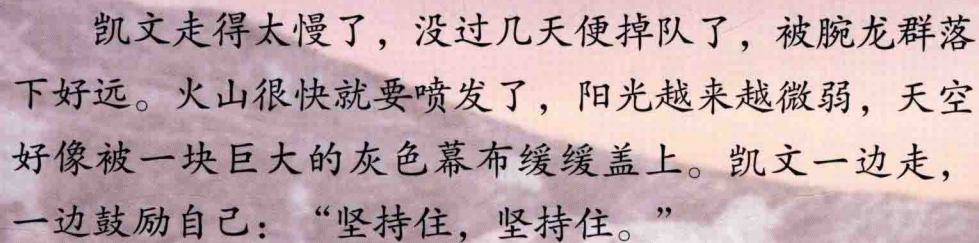 凯文走得太慢了，没过几天便掉队了，被腕龙群落
下好远。火山很快就要喷发了，阳光越来越微弱，天空
好像被一块巨大的灰色幕布缓缓盖上。凯文一边走，
一边鼓励自己：“坚持住，坚持住。”